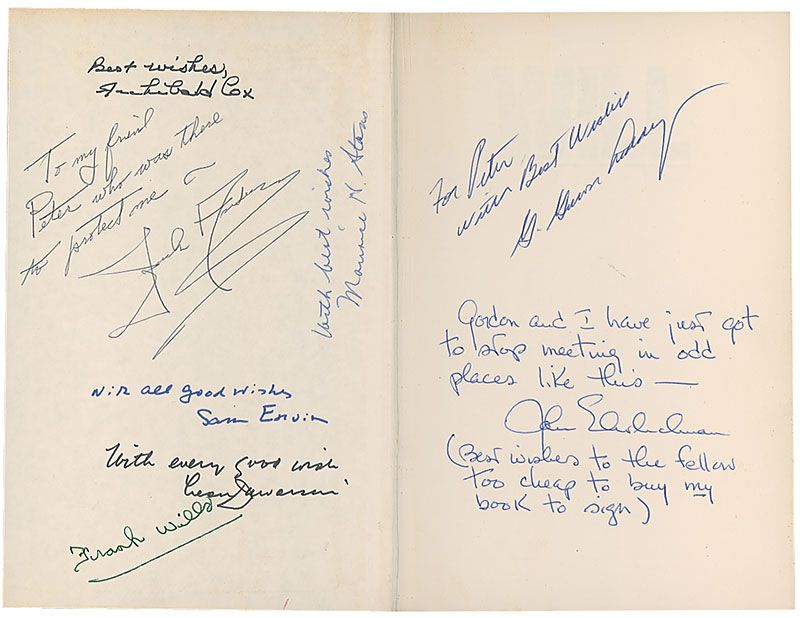 Best wishes,
Archibald Cox
To my friend
Peter who was there
to protect me ~
Jack Anderson
With best wishes
Maurice H. Stans
With all good wishes
Sam Ervin
With every good wish
Leon Jaworski
Frank Wills
For Peter,
with Best Wishes
G. Gordon Liddy
Gordon and I have just got
to stop meeting in odd
places like this —
John Ehrlichman
(Best wishes to the fellow
too cheap to buy my
book to sign)